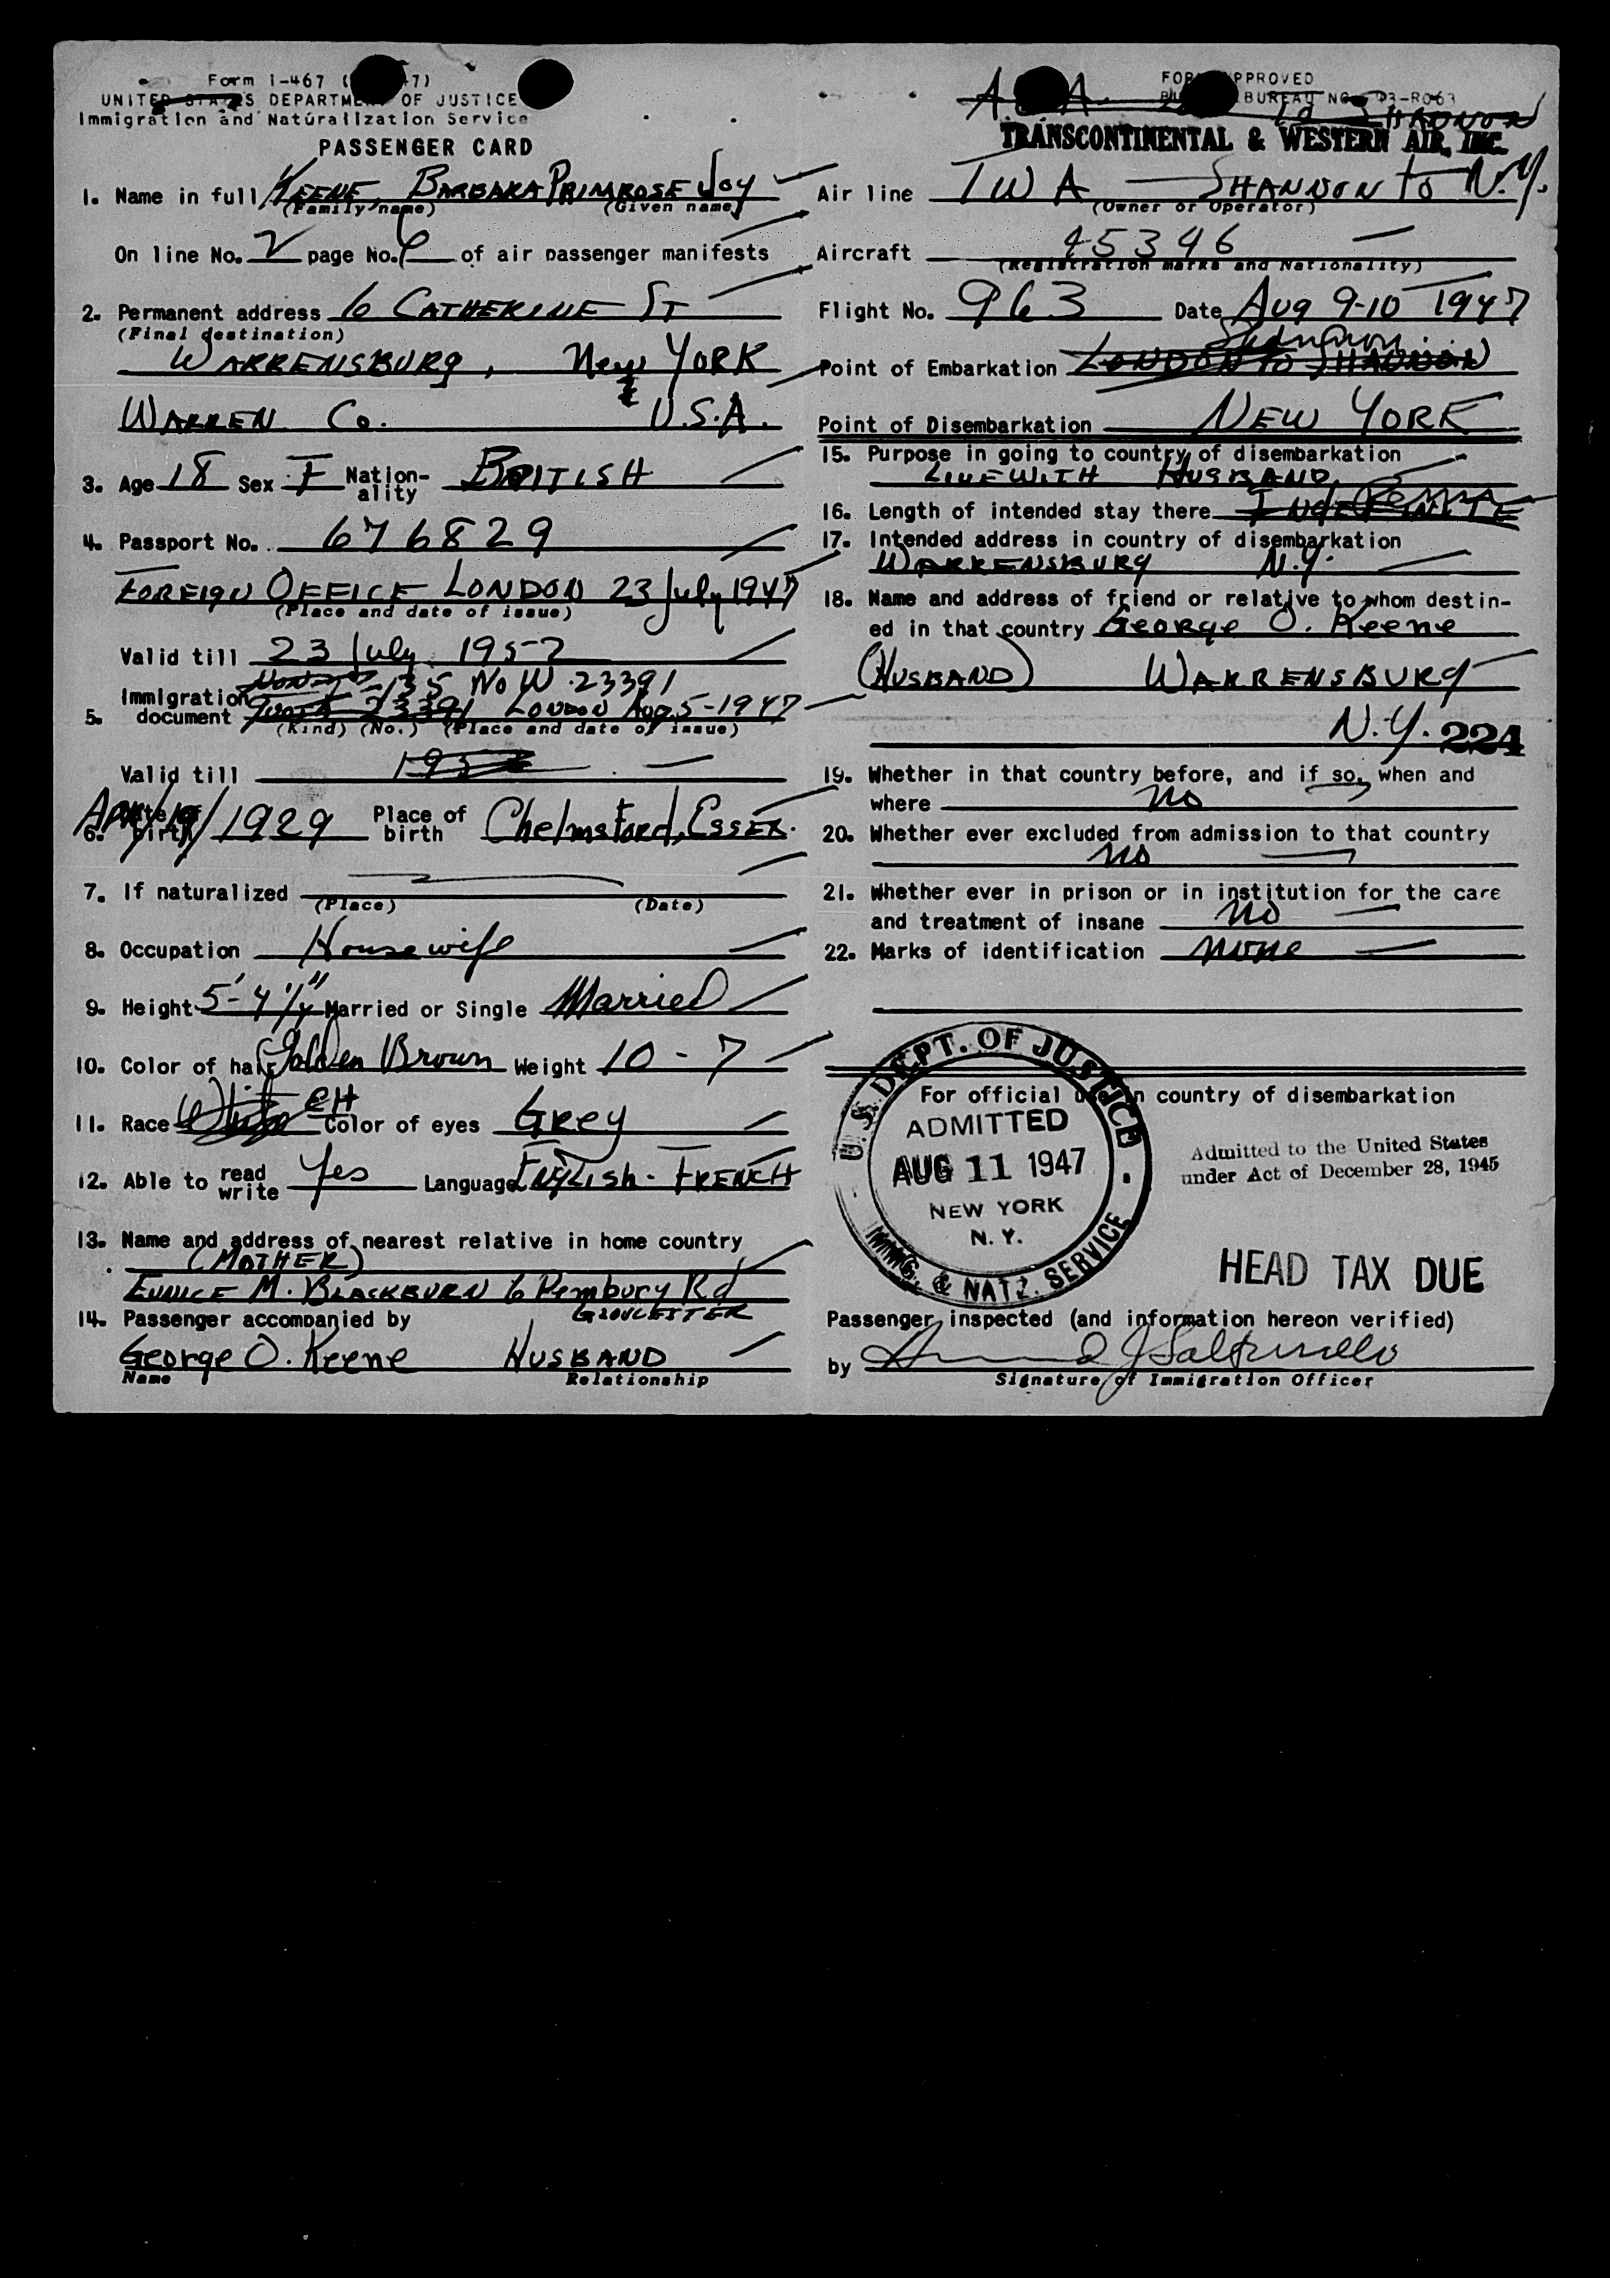 Form I-467
UNITED STATES DEPARTMENT OF JUSTICE
Immigration and Naturalization Service
PASSENGER CARD
1. Name in full KEENE, BARBARA PRIMROSE JOY
(Family name) (Given name)
On line No. 2 page No. 6 of air passenger manifests
2. Permanent address 6 CATHERINE ST
(Final destination)
WARRENSBURG, New YORK
WARREN Co. U.S.A.
3. Age 18 Sex F Nation-ality BRITISH
4. Passport No. 676829
FOREIGN OFFICE LONDON 23 July 1947
(Place and date of issue)
Valid till 23 July 1952
No W 23391
5. Immigration document Quota 23391 LONDON Aug 5-1947
(Kind) (No.) (Place and date of issue)
Valid till
6. Date of birth April/19/1929 Place of birth Chelmsford, ESSEX.
7. If naturalized
(Place) (Date)
8. Occupation Housewife
9. Height 5'-4 1/4" Married or Single Married
10. Color of hair Golden Brown Weight 10-7
11. Race White Color of eyes Grey
12. Able to read write Yes Language English - FRENCH
13. Name and address of nearest relative in home country
(MOTHER)
EUNICE M. BLACKBURN 6 Pembury Rd
GLOUCESTER
14. Passenger accompanied by
George O. Keene HUSBAND
Name Relationship
FORM APPROVED
BUREAU NO. 43-R063
SHANNON
TRANSCONTINENTAL & WESTERN AIR, INC.
Air line TWA — SHANNON to N.Y.
(Owner or Operator)
Aircraft 45346
(Registration marks and Nationality)
Flight No. 963 Date Aug 9-10 1947
Shannon
Point of Embarkation LONDON to SHANNON
Point of Disembarkation NEW YORK
15. Purpose in going to country of disembarkation
LIVE WITH HUSBAND
16. Length of intended stay there INDEFINITE
17. Intended address in country of disembarkation
WARRENSBURG N.Y.
18. Name and address of friend or relative to whom destin-
ed in that country George O. Keene
(HUSBAND) WARRENSBURG
N.Y. 224
19. Whether in that country before, and if so, when and
where no
20. Whether ever excluded from admission to that country
no
21. Whether ever in prison or in institution for the care
and treatment of insane no
22. Marks of identification none
For official use in country of disembarkation
U.S. DEPT. OF JUSTICE
ADMITTED
AUG 11 1947
NEW YORK
N.Y.
IMMG. & NATZ. SERVICE
Admitted to the United States
under Act of December 28, 1945
HEAD TAX DUE
Passenger inspected (and information hereon verified)
by
Signature of Immigration Officer